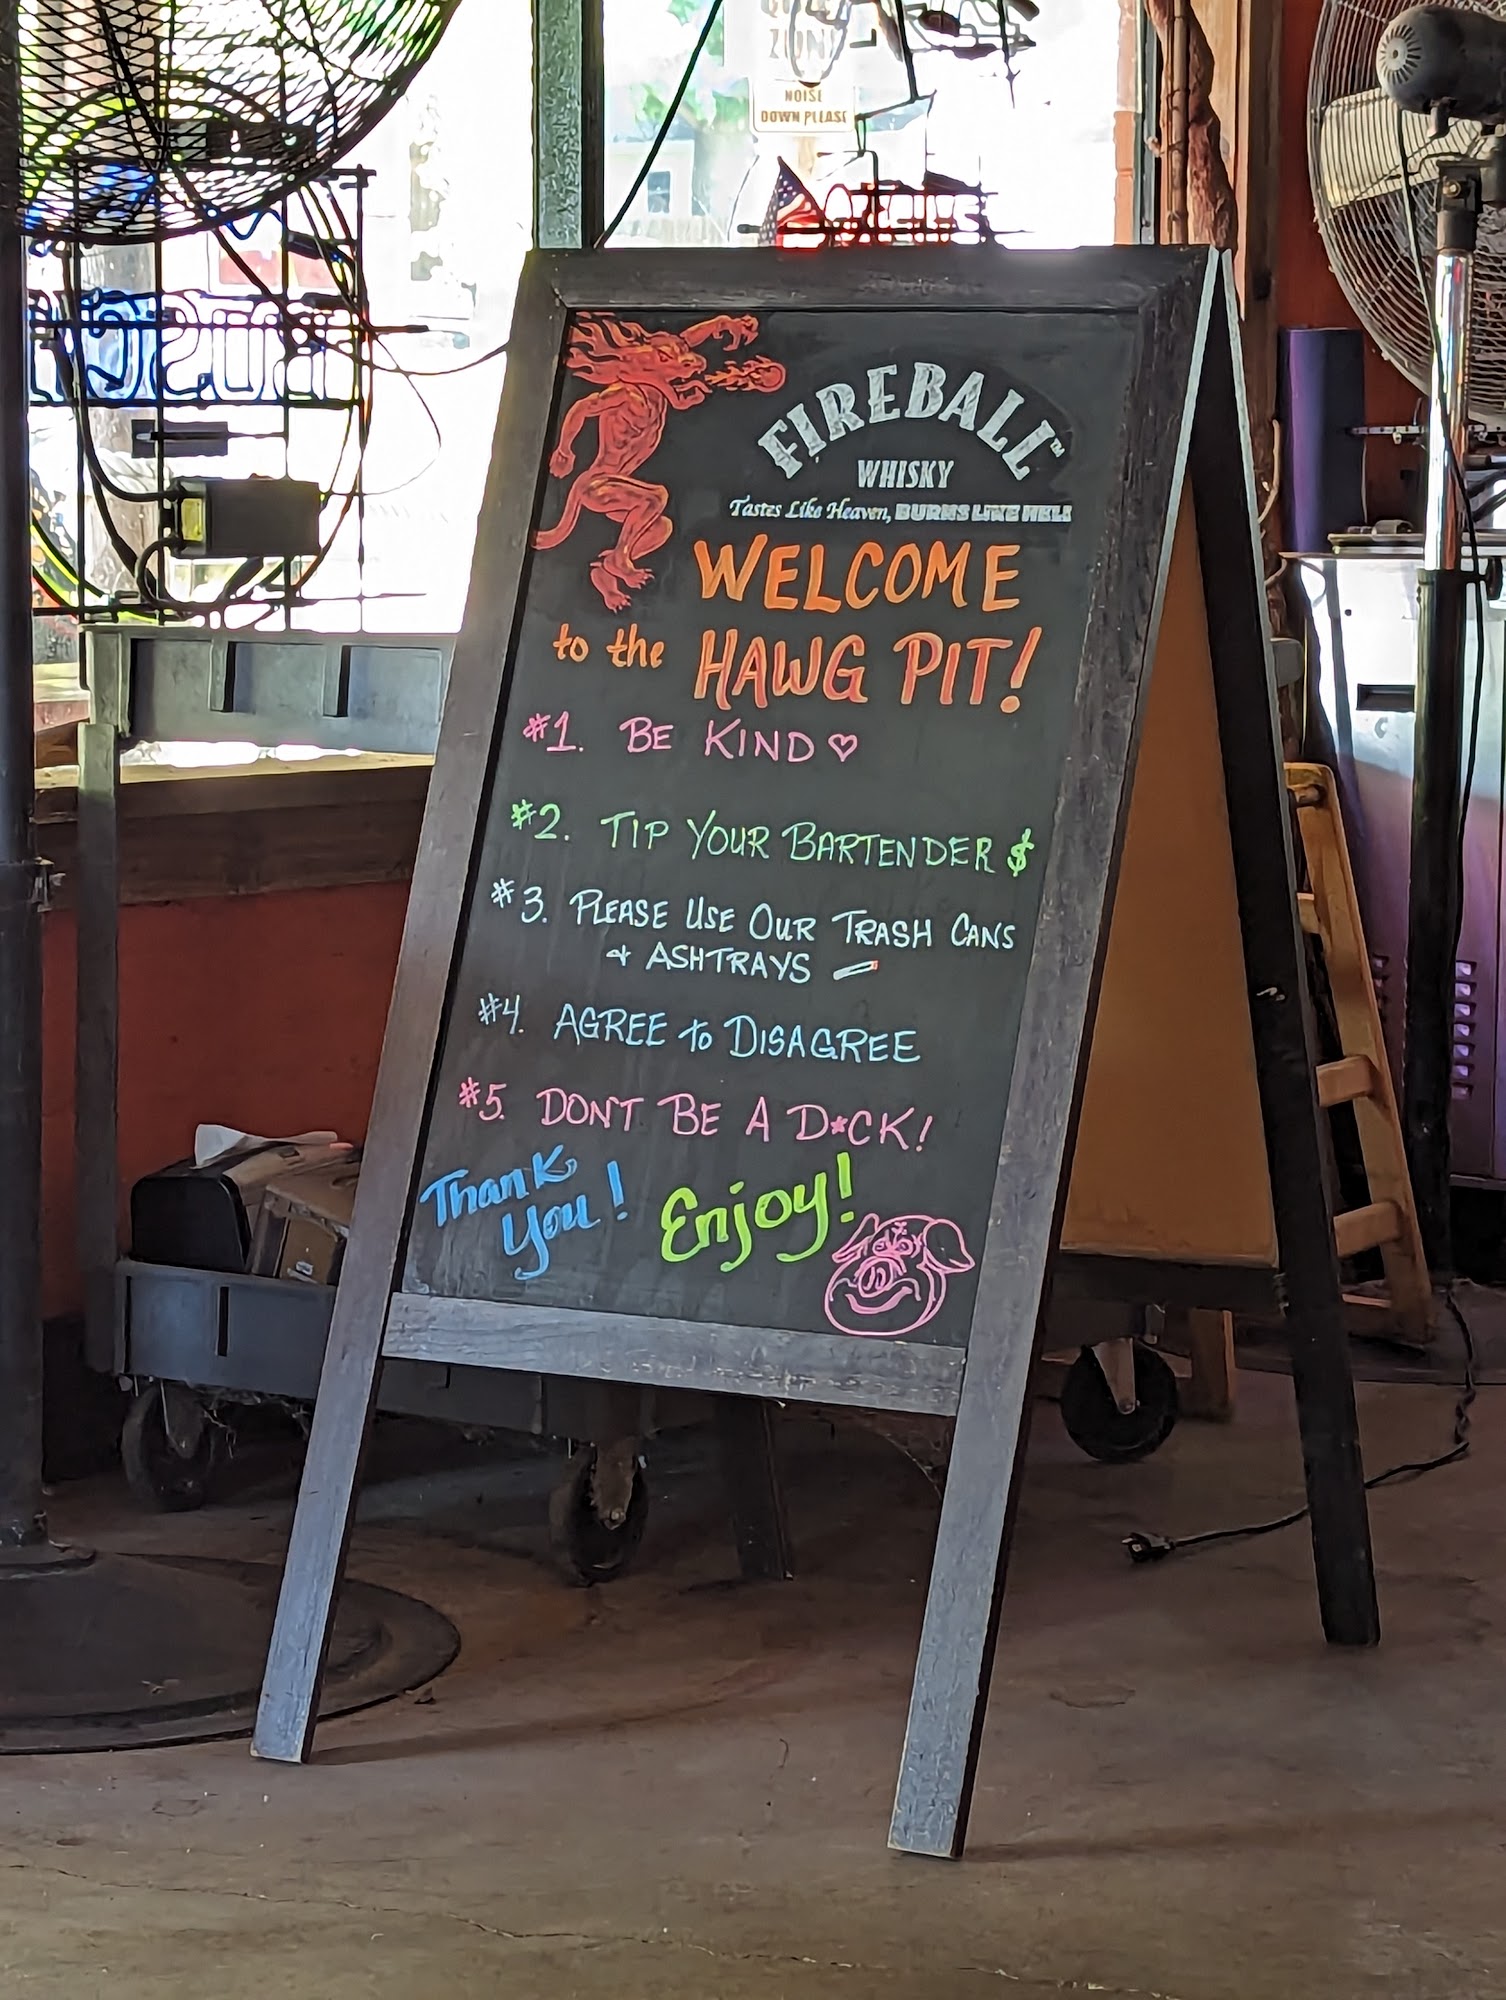 ZONE
NOISE
DOWN PLEASE
FIREBALL™
WHISKY
Tastes Like Heaven, BURNS LIKE HELL
WELCOME
to the HAWG PIT!
#1. BE KIND ♡
#2. TIP YOUR BARTENDER $
#3. PLEASE USE OUR TRASH CANS
+ ASHTRAYS
#4. AGREE to DISAGREE
#5. DON'T BE A D*CK!
Thank
you!
Enjoy!